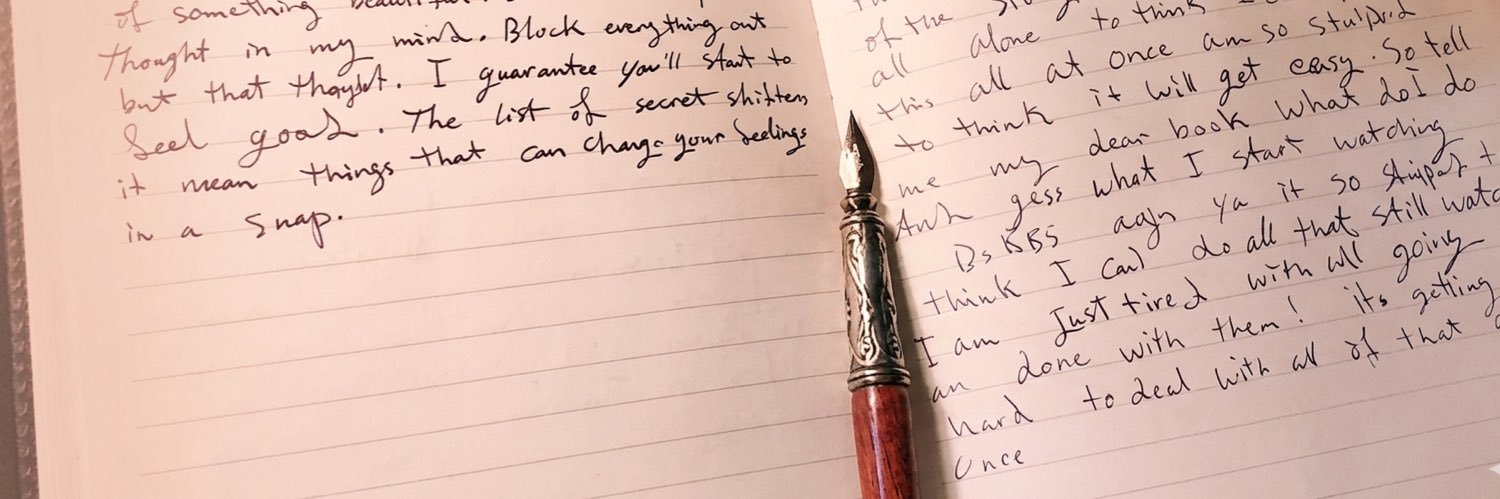 of something
thought in my mind. Block everything out
but that thayht. I guarantee you'll start to
feel good. The list of secret shifters
it mean things that can change your feelings
in a snap.
of the
all alone to think
this all at once am so stulpid
to think it will get easy. So tell
me my dear book what do I do
Anh gess what I start watching
Bs KBS agjn ya it so stuipd
think I can do all that still watc
I am Just tired with all going
an done with them! its getting
hard to deal with all of that
Once